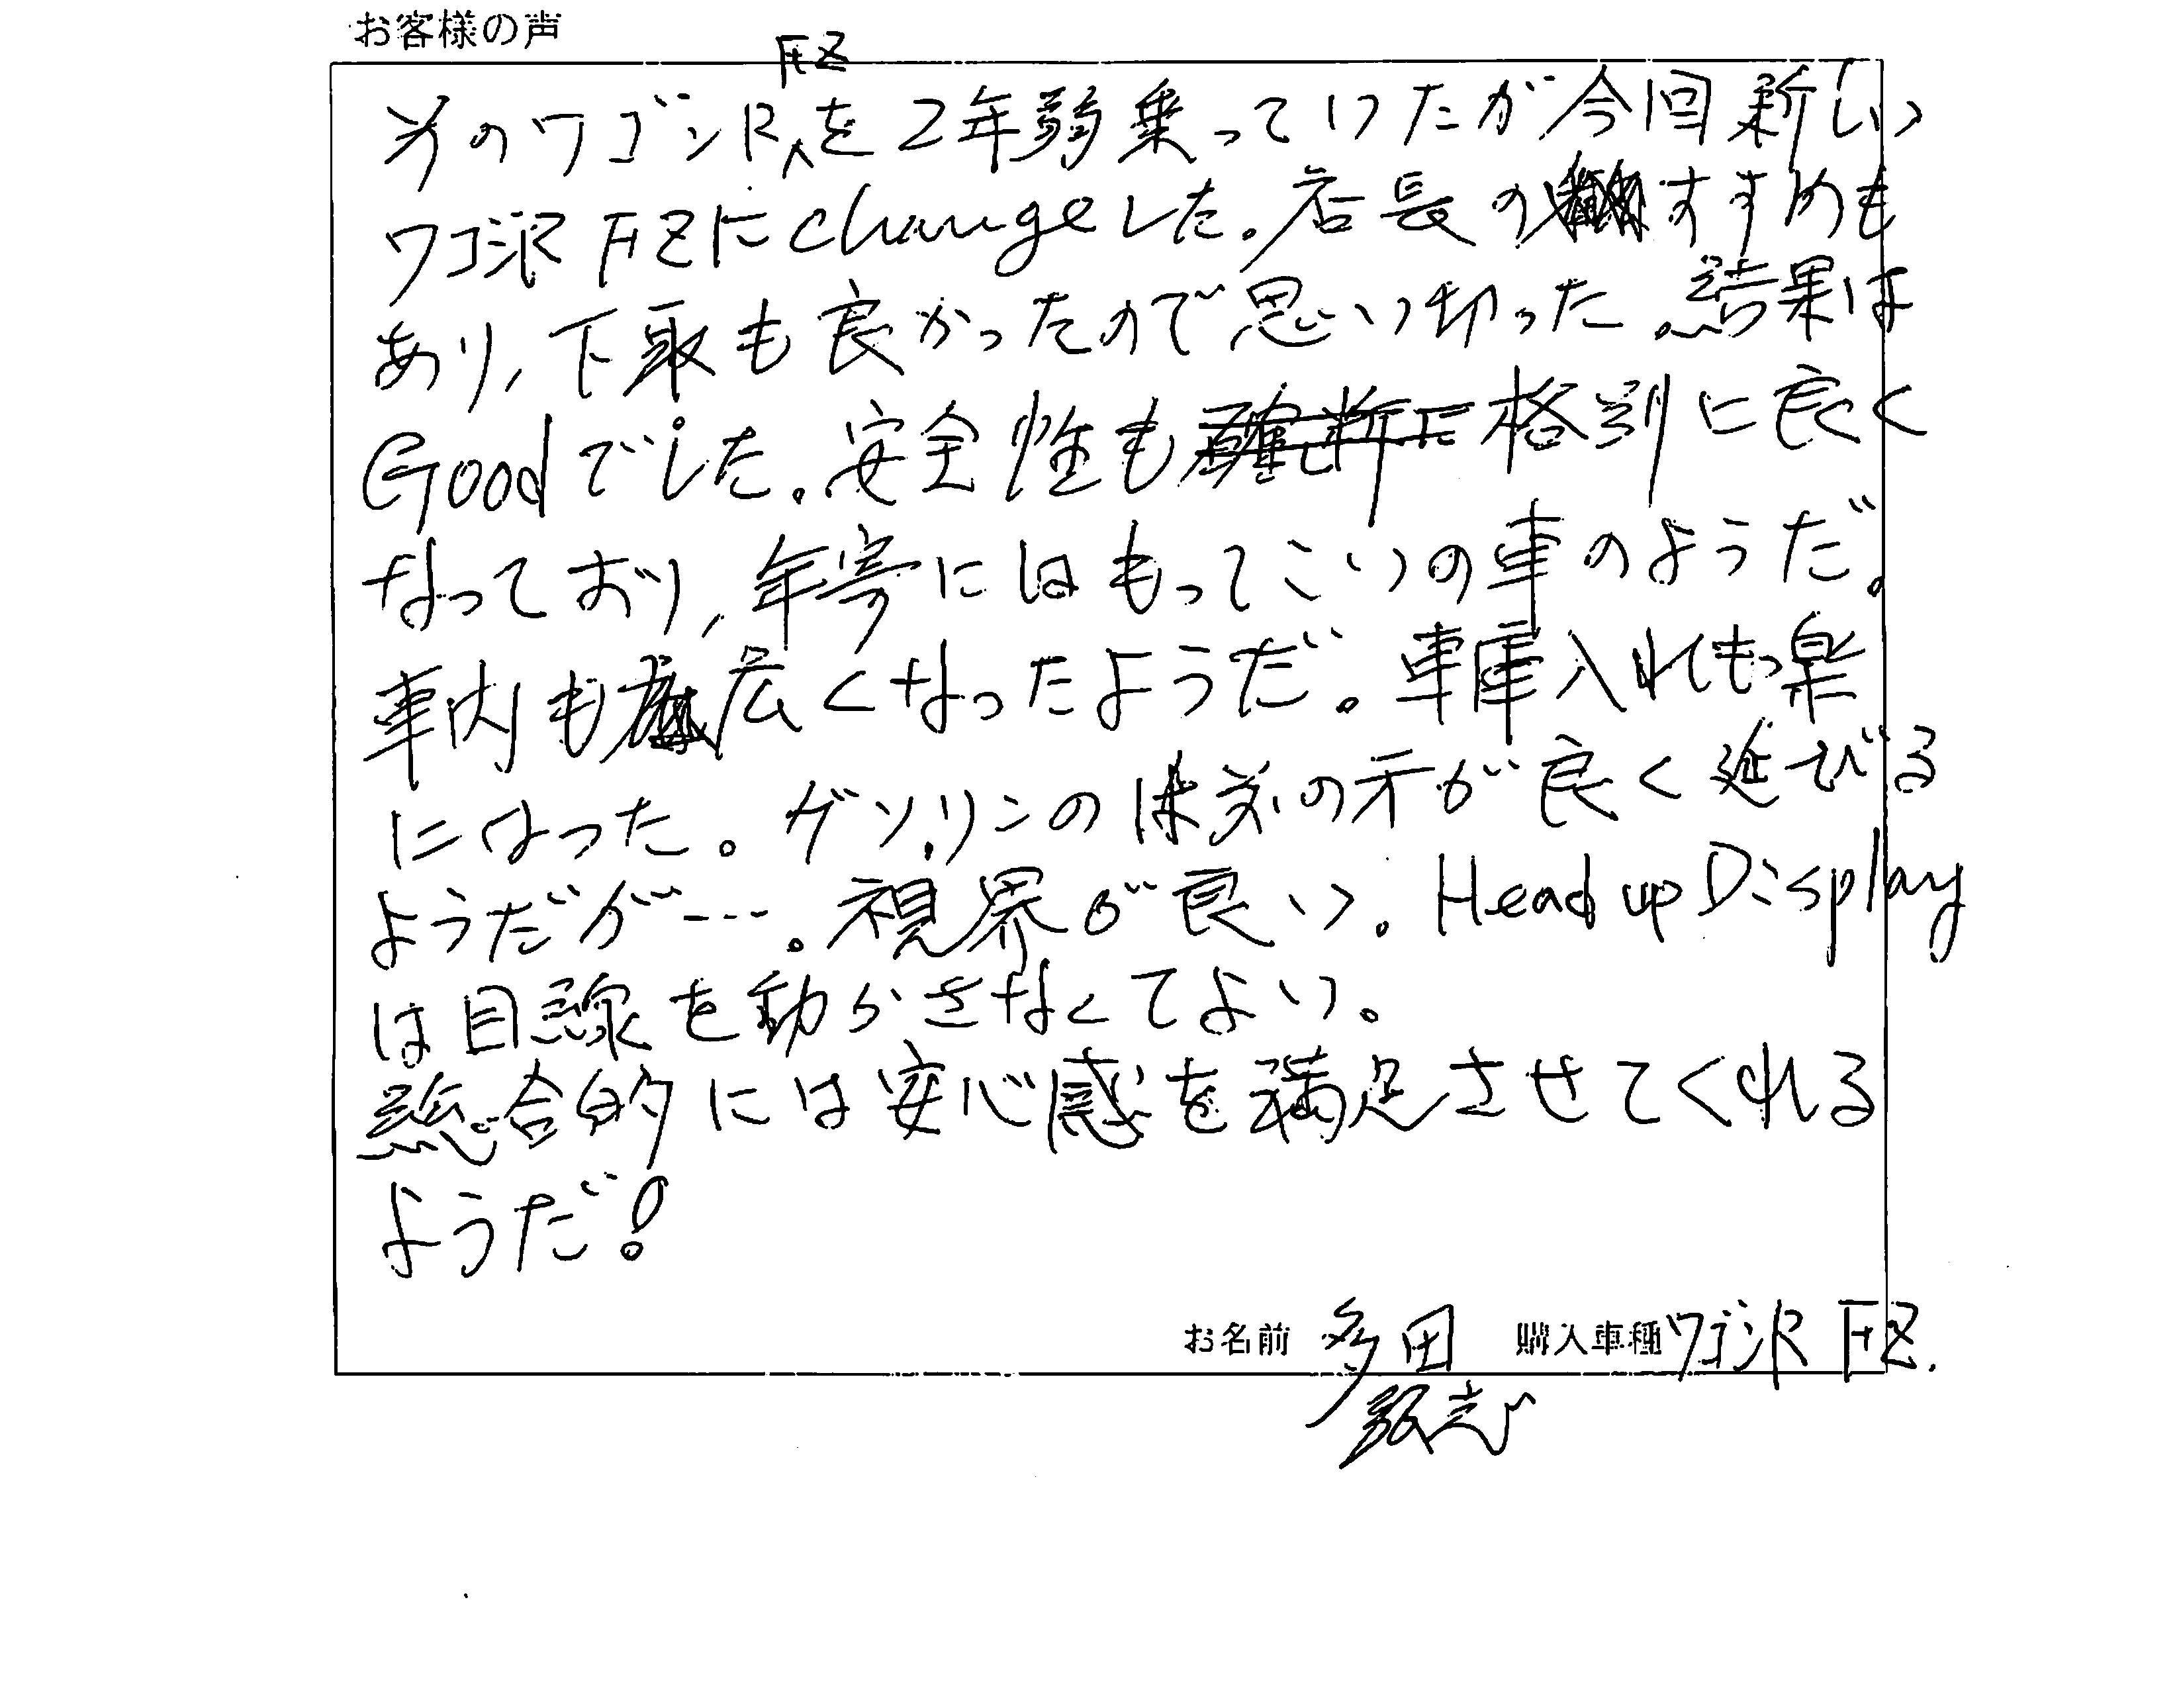 お客様の声
前のワゴンR FZを2年弱乗っていたが今回新しい
ワゴンR FZにchangeした。店長のすすめも
あり、下取も良かったので思い切った。結果は
Goodでした。安全性も格別に良く
なっており、年寄にはもってこいの車のようだ。
車内も広くなったようだ。車庫入れも楽
になった。ガソリンのは前の方が良く延びる
ようだが…。視界が良い。Head up Display
は目線を動かさなくてよい。
総合的には安心感を満足させてくれる
ようだ!
お名前 多田 購入車種 ワゴンR FZ.